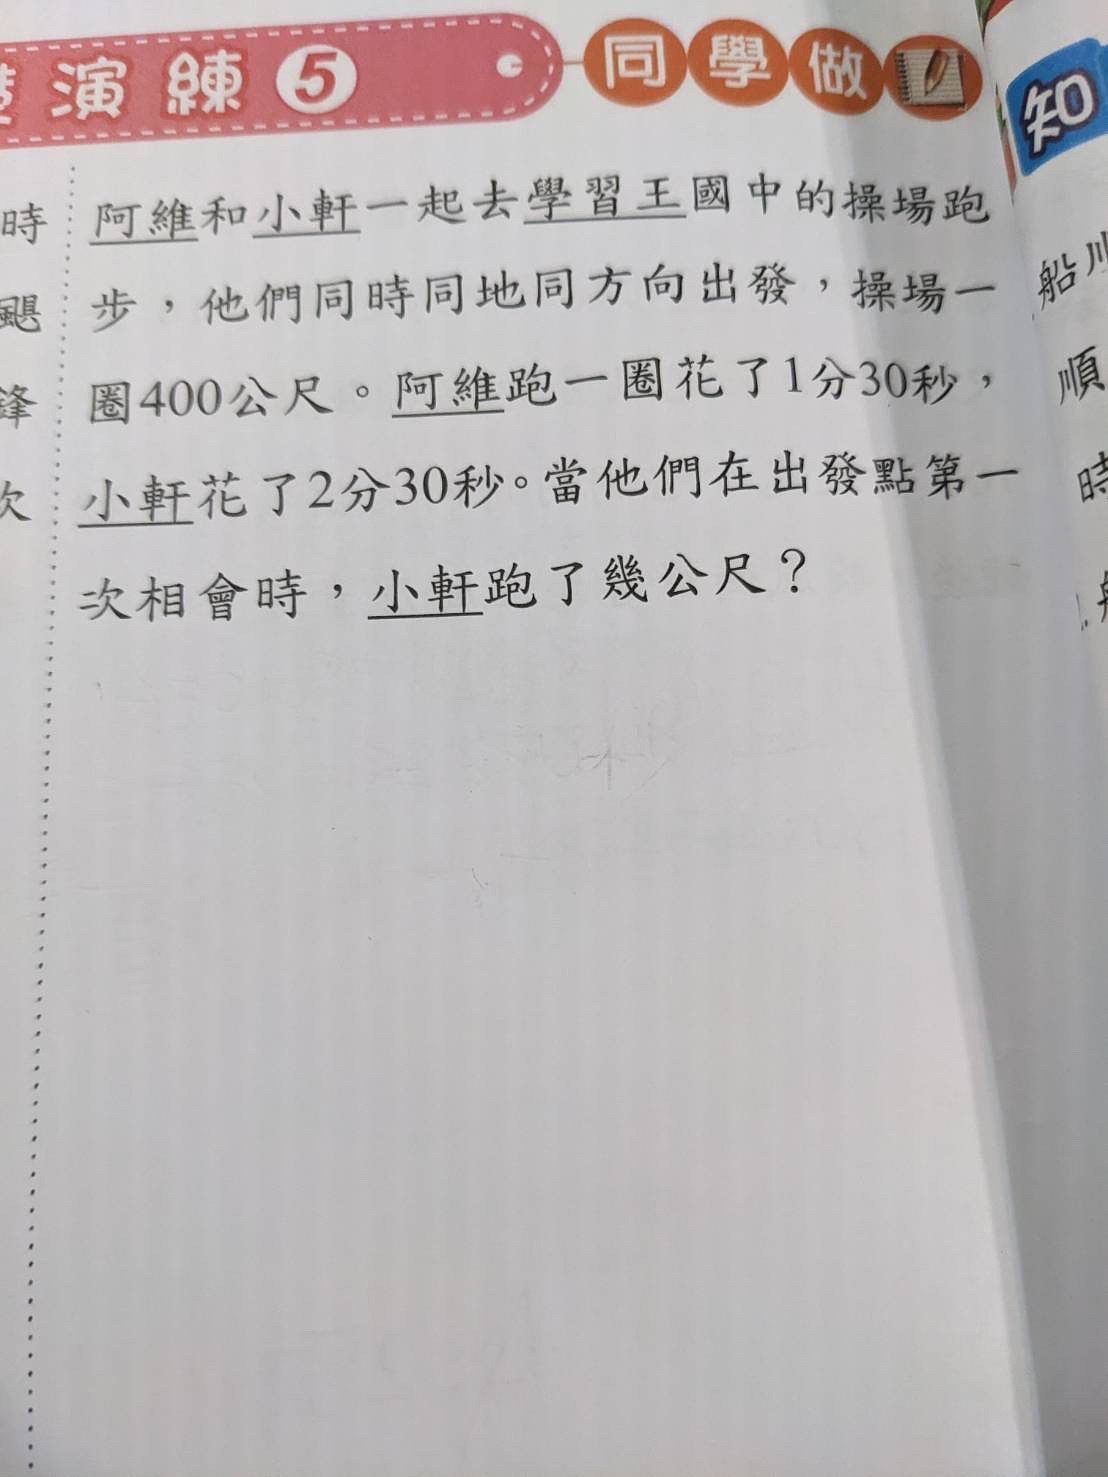 演練5 同學做
知
時 阿維和小軒一起去學習王國中的操場跑
颶 步，他們同時同地同方向出發，操場一
船
鋒 圈400公尺。阿維跑一圈花了1分30秒，
順
次 小軒花了2分30秒。當他們在出發點第一
時
次相會時，小軒跑了幾公尺？